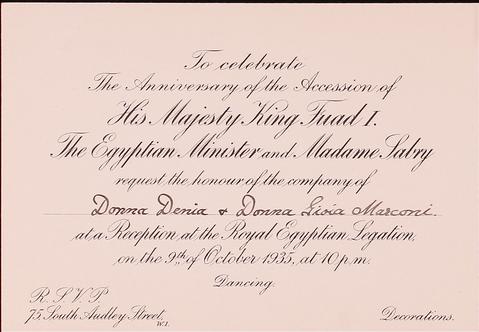 To celebrate
The Anniversary of the Accession of
His Majesty King Fuad I.
The Egyptian Minister and Madame Sabry
request the honour of the company of
Donna Denia & Donna Gioia Marconi.
at a Reception at the Royal Egyptian Legation,
on the 9th of October 1935, at 10 p.m.
Dancing.
R. S. V. P.
75, South Audley Street,
W.1.
Decorations.